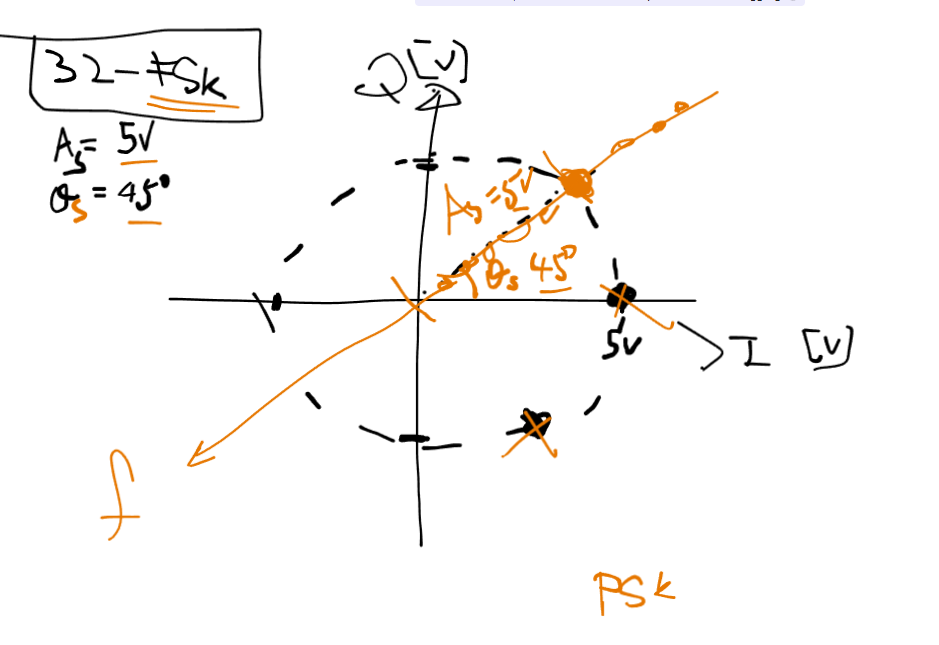 32-FSK
Q [V]
As = 5V
θs = 45°
As = 5V
θs 45°
5V
I [V]
f
PSK